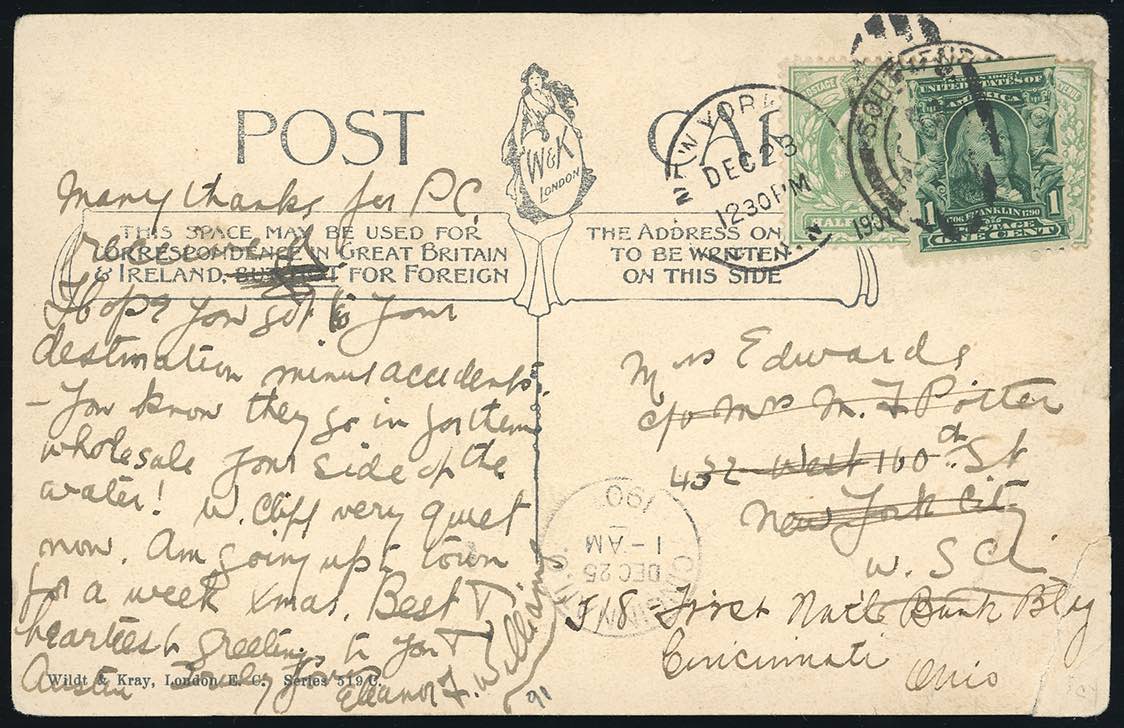 POST CAR
W&K
LONDON
NEW YORK
DEC 23
1230PM
N.Y.
190
POSTAGE
HALF
UNITED STATES OF
AMERICA
1706 FRANKLIN 1790
1 POSTAGE 1
ONE CENT
THIS SPACE MAY BE USED FOR
CORRESPONDENCE IN GREAT BRITAIN
& IRELAND, BUT NOT FOR FOREIGN
THE ADDRESS ON
TO BE WRITTEN
ON THIS SIDE
Many thanks for P.C.
recd
I hope you got to your
destination minus accidents.
– You know they go in for them
wholesale your side of the
water! W. Cliff very quiet
now. Am going up to town
for a week Xmas. Best &
heartiest greetings to you &
Austin
Eleanor F. Williams
Mrs Edwards
c/o Mrs M. F Potter
432 West 160th St
New York City
U.S.A.
718 First Nat'l Bank Bldg
Cincinnati
Ohio
DEC 25
1–AM
190
Wildt & Kray, London E. C. Series 519 C.